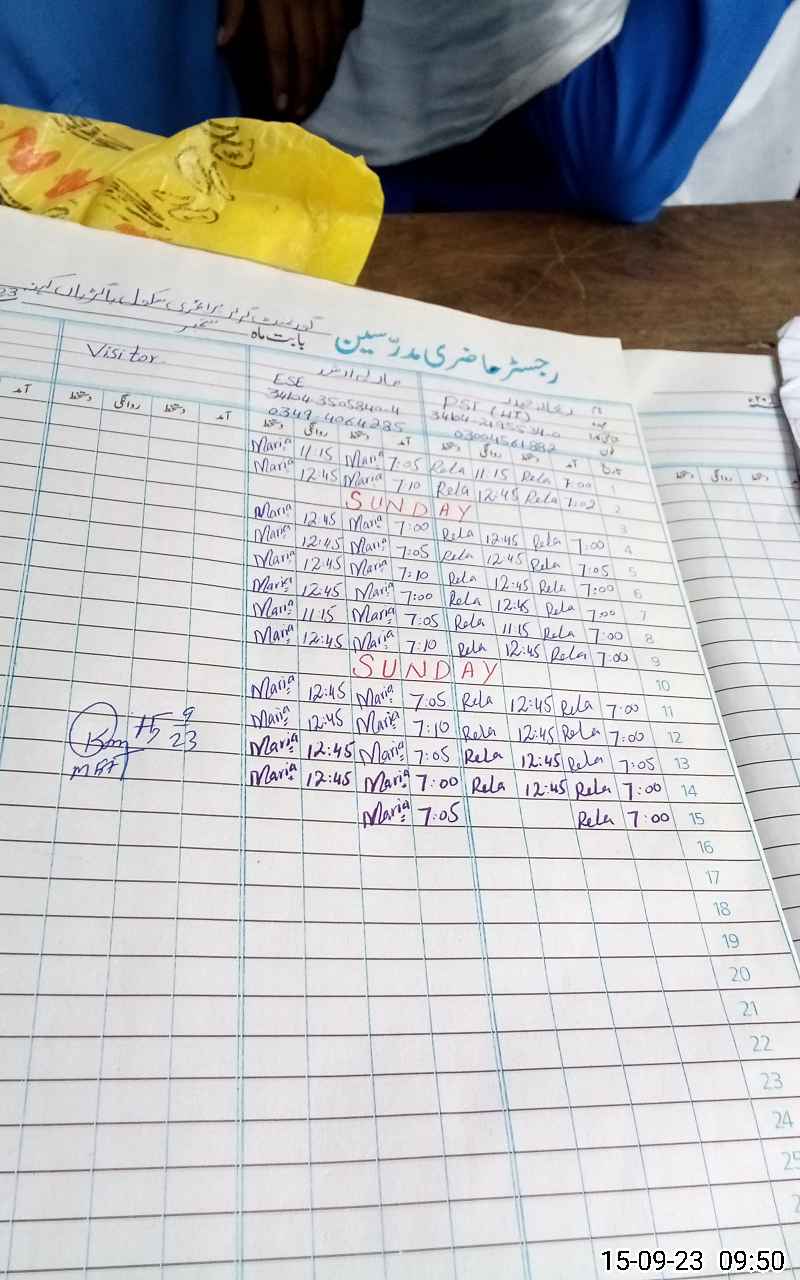 گورنمنٹ گرلز پرائمری سکول
رجسٹر حاضری مدرّسین بابت ماہ ستمبر
Visitor
ESE PST (HT)
34104-3505840-4
0349-4064285 03004561882
آمد دستخط روانگی دستخط آمد دستخط روانگی دستخط آمد
Maria 11:15 Maria 7:05 Rela 11:15 Rela 7:00 1
Maria 12:45 Maria 7:10 Rela 12:45 Rela 7:02 2
SUNDAY 3
Maria 12:45 Maria 7:00 Rela 12:45 Rela 7:00 4
Maria 12:45 Maria 7:05 Rela 12:45 Rela 7:05 5
Maria 12:45 Maria 7:10 Rela 12:45 Rela 7:00 6
Maria 12:45 Maria 7:00 Rela 12:45 Rela 7:00 7
Maria 11:15 Maria 7:05 Rela 11:15 Rela 7:00 8
Maria 12:45 Maria 7:10 Rela 12:45 Rela 7:00 9
SUNDAY 10
Maria 12:45 Maria 7:05 Rela 12:45 Rela 7:00 11
Maria 12:45 Maria 7:10 Rela 12:45 Rela 7:00 12
Maria 12:45 Maria 7:05 Rela 12:45 Rela 7:05 13
Maria 12:45 Maria 7:00 Rela 12:45 Rela 7:00 14
Maria 7:05 Rela 7:00 15
15 9
23
16
17
18
19
20
21
22
23
24
25
15-09-23 09:50